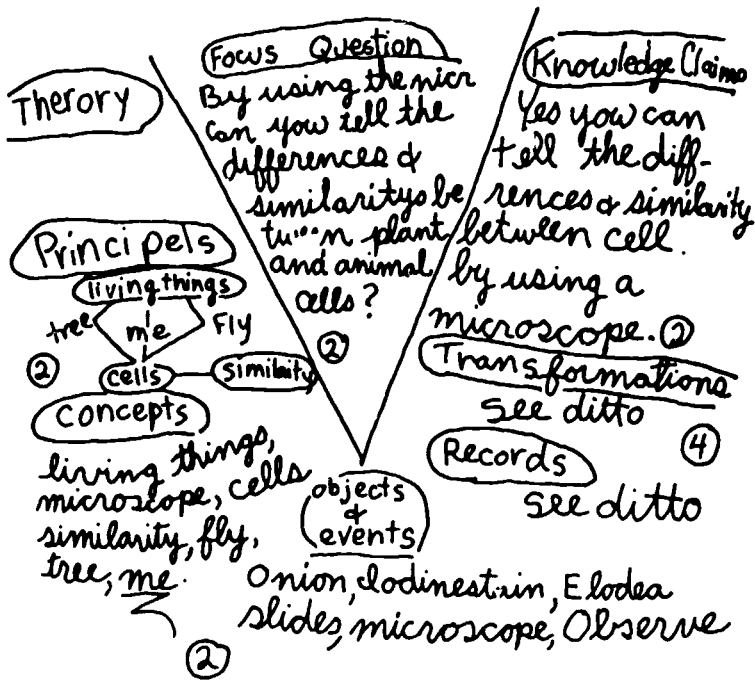 Therory
Principels
living things
tree me Fly
②
cells similarity
concepts
living things,
microscope, cells
similarity, fly,
tree, me.
②
Focus Question
By using the micr
can you tell the
differences &
similaritys be
tu...n plant
and animal
cells?
②
Knowledge Claims
Yes you can
tell the diff-
rences & similarity
between cell.
by using a
microscope. ②
Transformations
see ditto
④
Records
see ditto
objects
&
events
Onion, Iodinestain, Elodea
slides, microscope, Observe